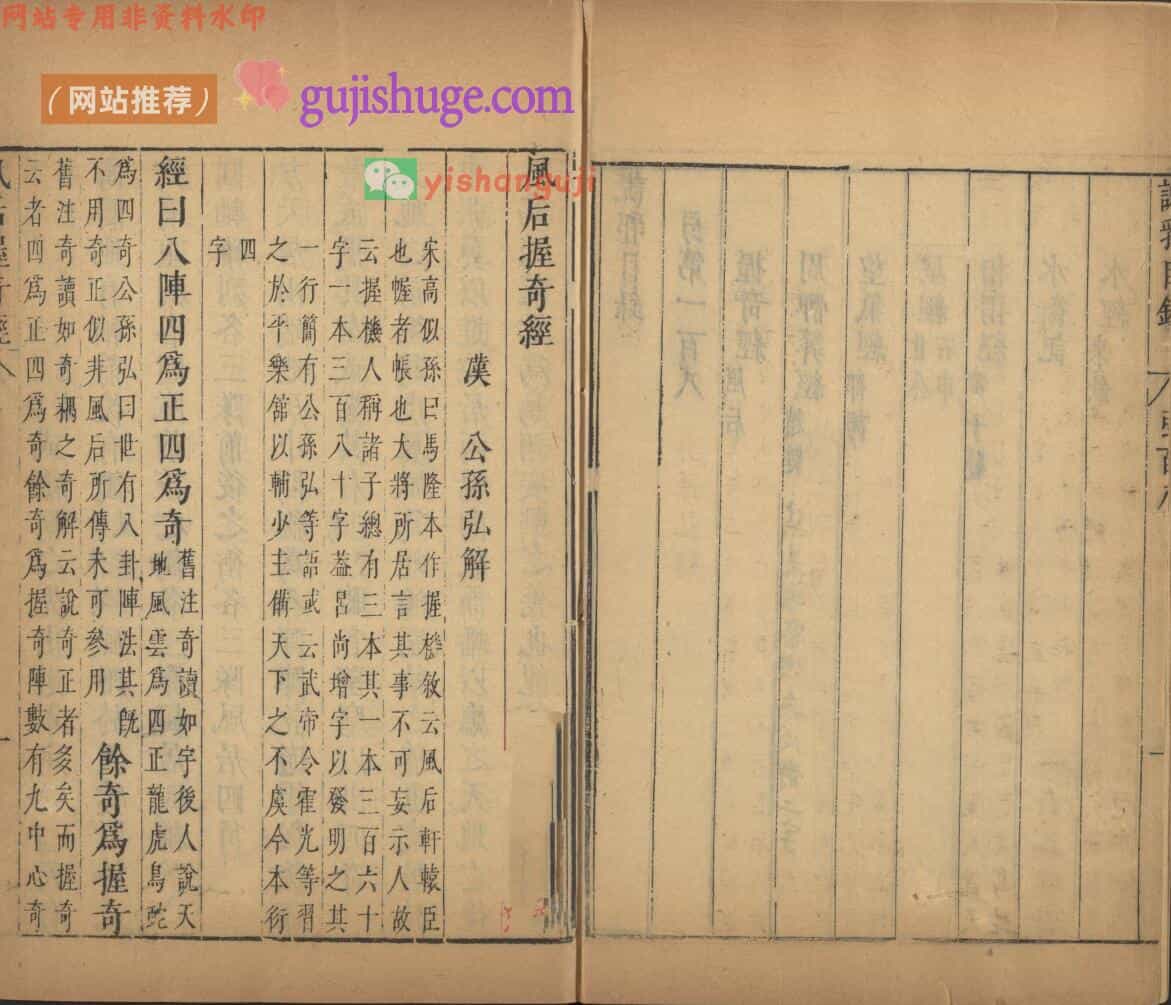 网站专用非资料水印
(网站推荐)
gujishuge.com
yishanguji
風后握奇經
漢 公孫弘解
宋高似孫曰馬隆本作握機敘云風后軒轅臣
也幄者帳也大將所居言其事不可妄示人故
云握機人稱諸子總有三本其一本三百六十
字一本三百八十字葢呂尚增字以發明之其
一行簡有公孫弘等語或云武帝令霍光等習
之於平樂館以輔少主備天下之不虞今本衍
四
字
經曰八陣四爲正四爲奇
舊注奇讀如字後人說天
地風雲爲四正龍虎鳥蛇
爲四奇公孫弘曰世有八卦陣法其旣
不用奇正似非風后所傳未可參用
餘奇爲握奇
舊注奇讀如奇耦之奇解云說奇正者多矣而握奇
云者四爲正四爲奇餘奇爲握奇陣數有九中心奇